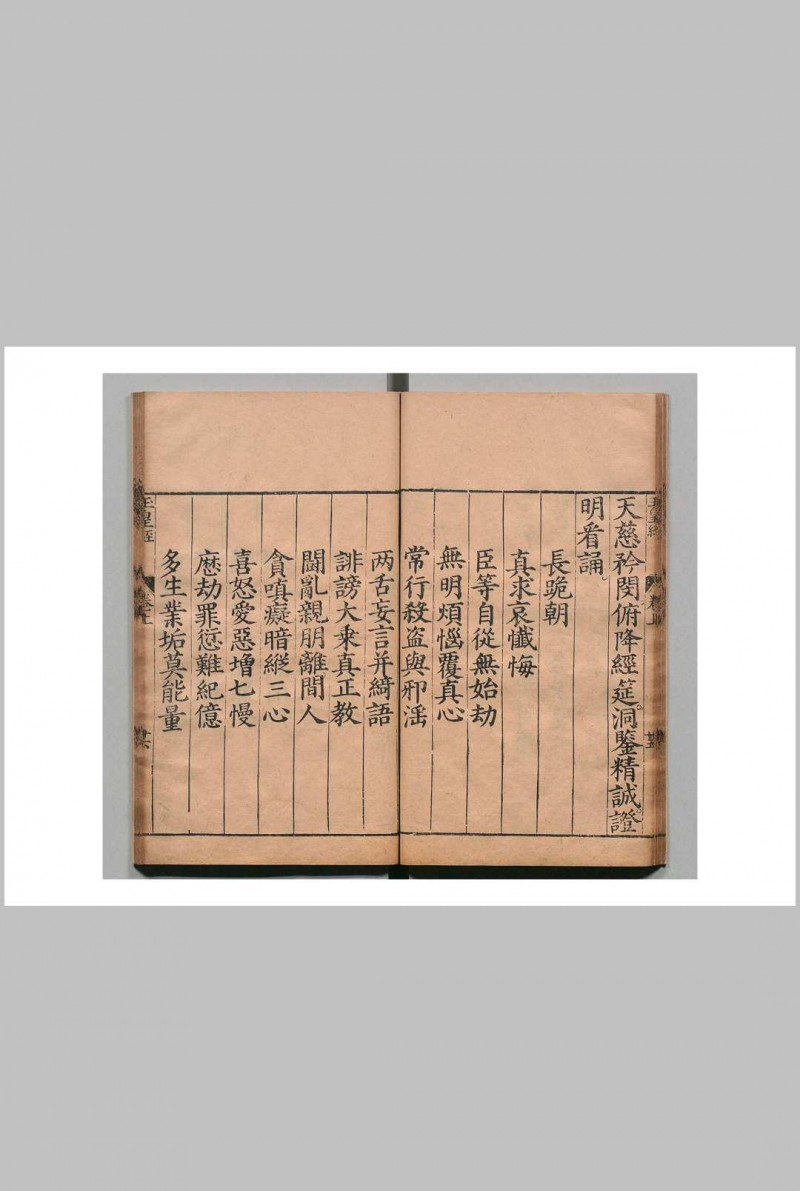 天慈矜閔俯降經筵。洞鑒精誠。證
明看誦。
長跪朝
真求哀懺悔
臣等自從無始劫
無明煩惱覆真心
常行殺盜與邪滛
两舌妄言并綺語
誹謗大乗真正教
鬪亂親朋離間人
貪嗔癡暗縦三心
喜怒愛惡增七慢
歴劫罪愆難紀億
多生業垢莫能量
玉皇經
卷上
廿六